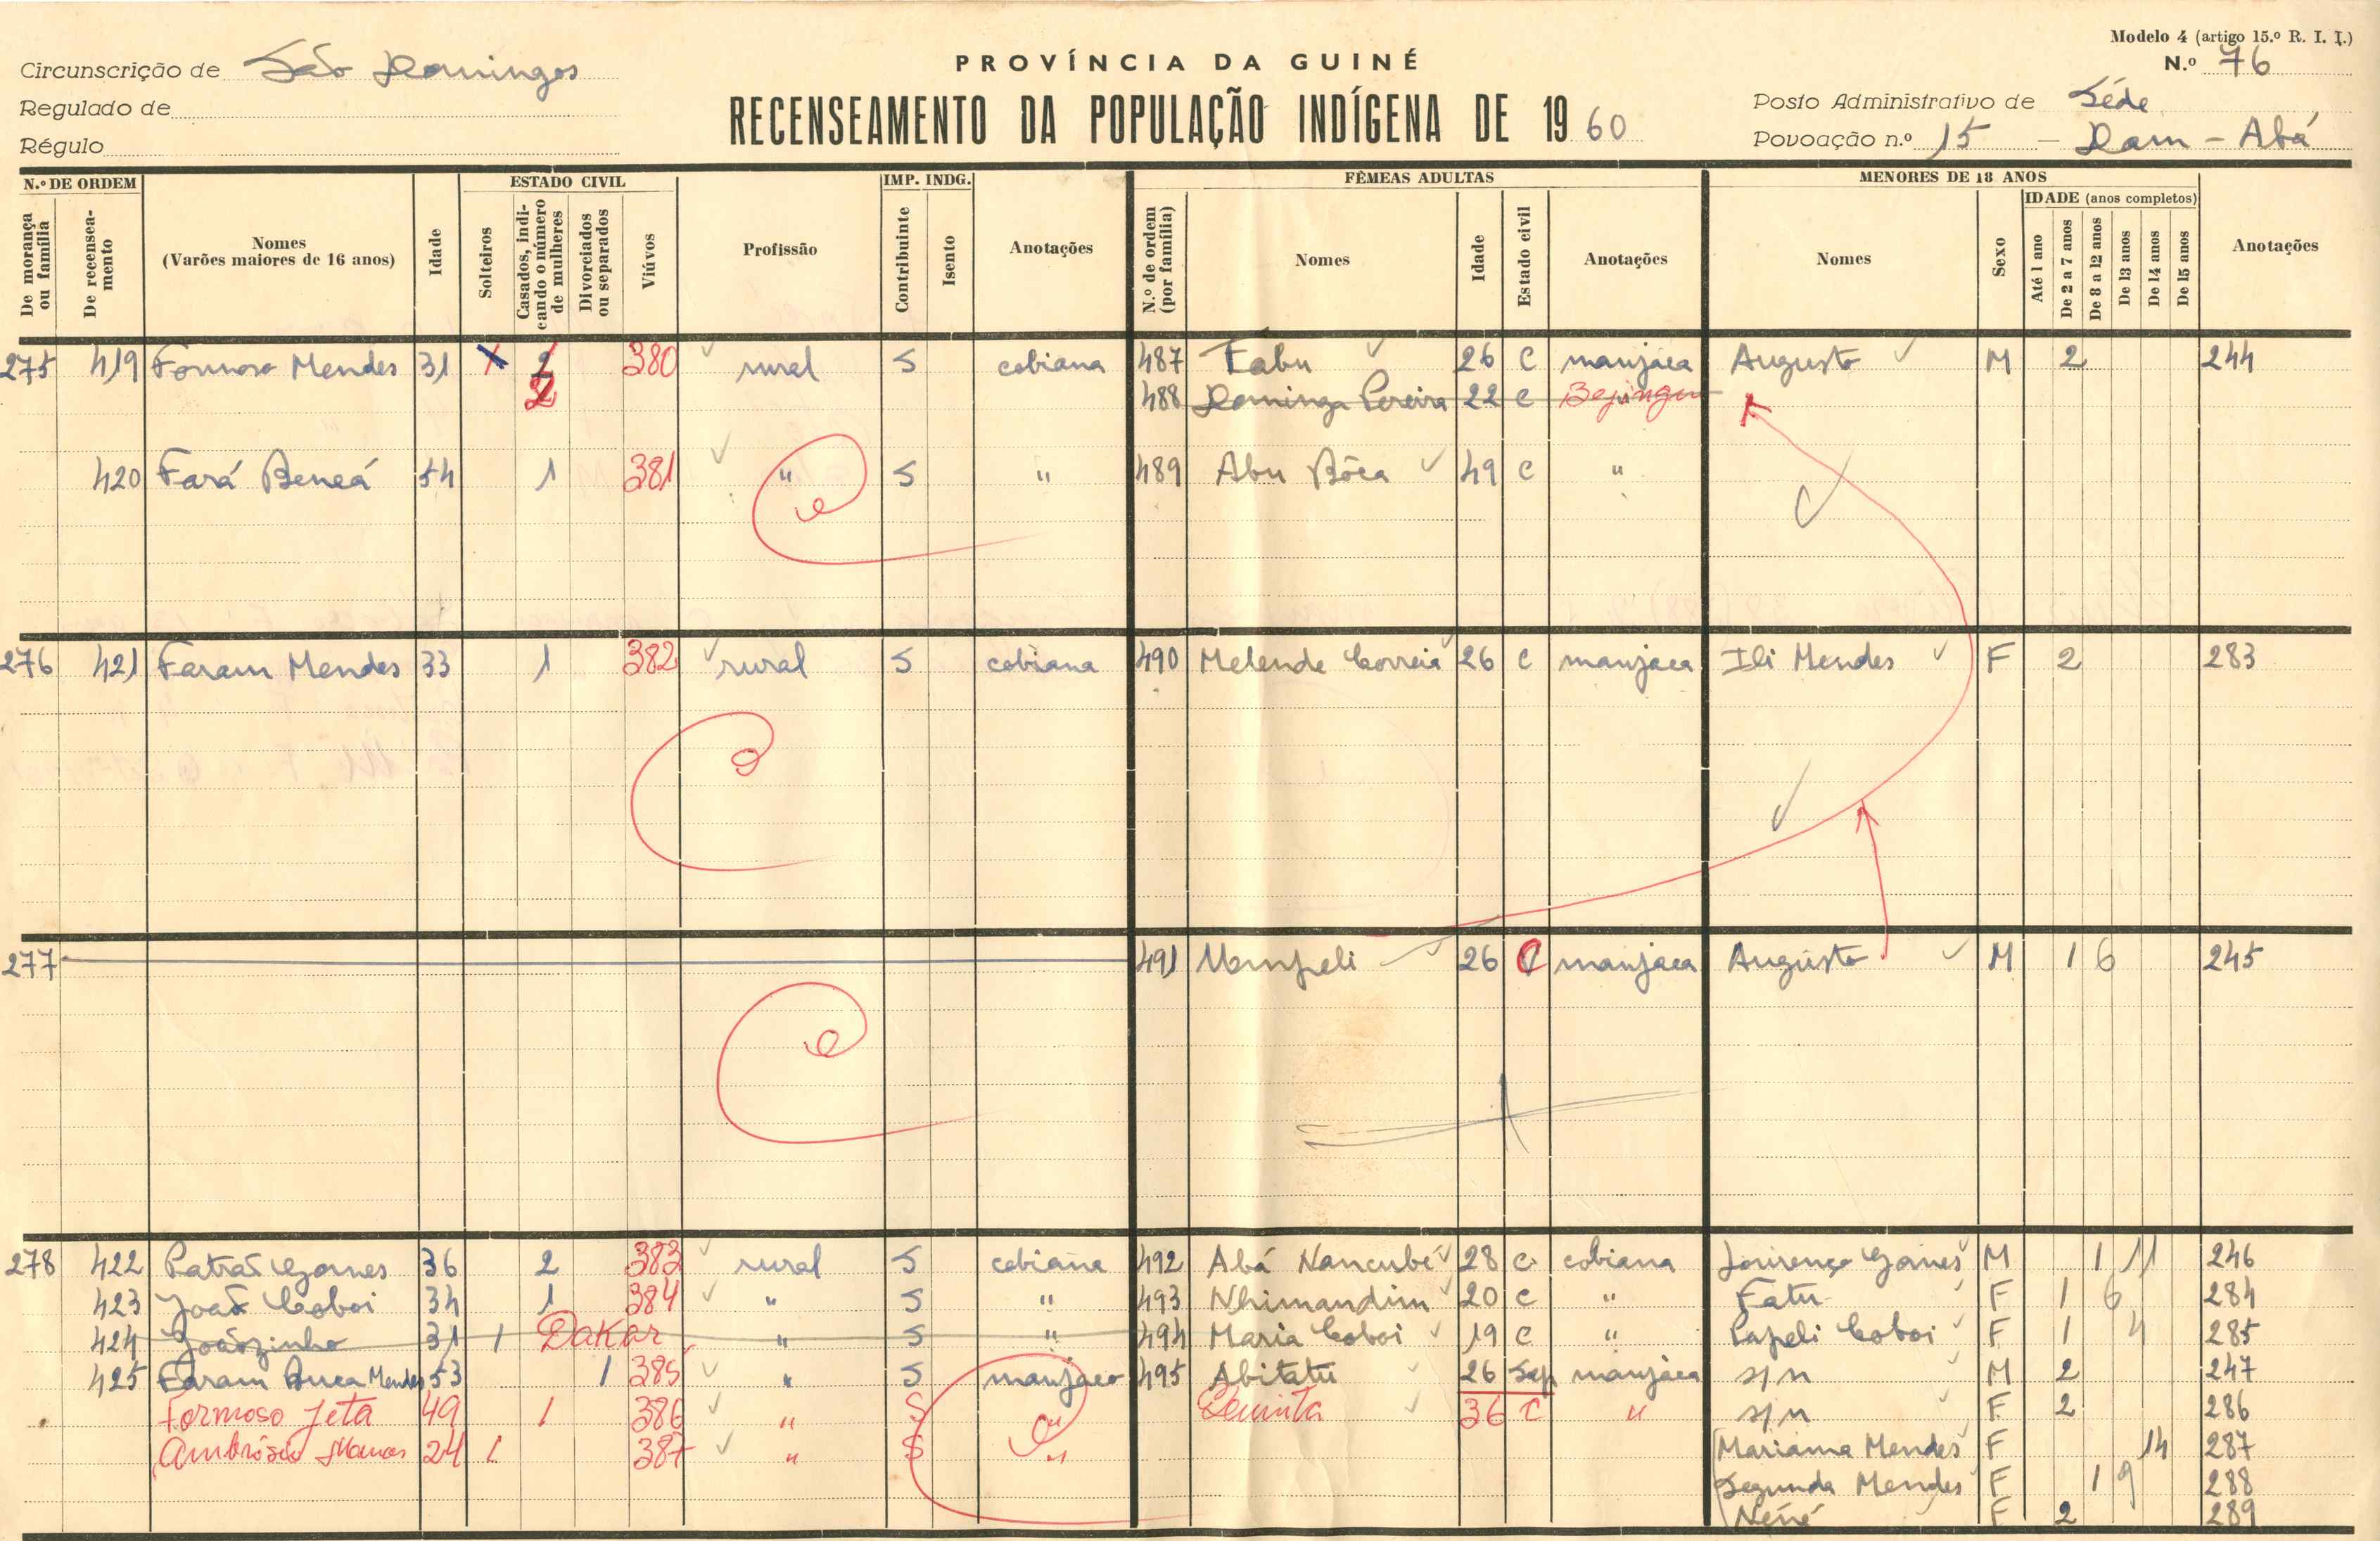 Modelo 4 (artigo 15.º R. I. I.)
Circunscrição de São Domingos
PROVÍNCIA DA GUINÉ
N.º 76
Regulado de
RECENSEAMENTO DA POPULAÇÃO INDÍGENA DE 1960
Posto Administrativo de Séde
Régulo
Povoação n.º 15 — Dam - Abá
N.º DE ORDEM
De morança ou família
De recenseamento
Nomes
(Varões maiores de 16 anos)
Idade
ESTADO CIVIL
Solteiros
Casados, indicando o número de mulheres
Divorciados ou separados
Viúvos
Profissão
IMP. INDG.
Contribuinte
Isento
Anotações
FÊMEAS ADULTAS
N.º de ordem (por família)
Nomes
Idade
Estado civil
Anotações
MENORES DE 18 ANOS
Nomes
Sexo
IDADE (anos completos)
Até 1 ano
De 2 a 7 anos
De 8 a 12 anos
De 13 anos
De 14 anos
De 15 anos
Anotações
275 419 Formoso Mendes 31 2 380 rural S cobiana 487 Fabu 26 C manjaca Augusto M 2 244
2 488 Dominga Pereira 22 C
420 Fará Beneá 54 1 381 " S " 489 Abu Bóca 49 C "
276 421 Faram Mendes 33 1 382 rural S cobiana 490 Melende Correia 26 C manjaca Ili Mendes F 2 283
277 491 26 C manjaca Augusto M 1 6 245
278 422 Patrão Gomes 36 2 383 rural S cobiana 492 Abá Nancubé 28 C cobiana Lourenço Gomes M 1 11 246
423 João Coboi 34 1 384 " S " 493 Nhimandim 20 C " Fatu F 1 6 284
424 Joãozinho 31 1 Dakar " S " 494 Maria Coboi 19 C " Papeli Coboi F 1 4 285
425 Faram Buca Mendes 53 1 385 " S manjaco 495 Abitatu 26 Sep manjaca s/n M 2 247
Formoso Jeta 49 1 386 " S " Quinta 36 C " s/n F 2 286
Ambrósio 24 1 387 " S " Mariama Mendes F 14 287
Segunda Mendes F 1 9 288
Néné F 2 289